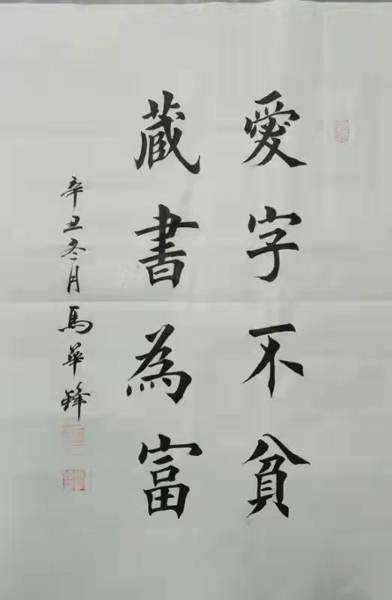 愛字不貧
蔵書為富
辛丑冬月馬華鋒